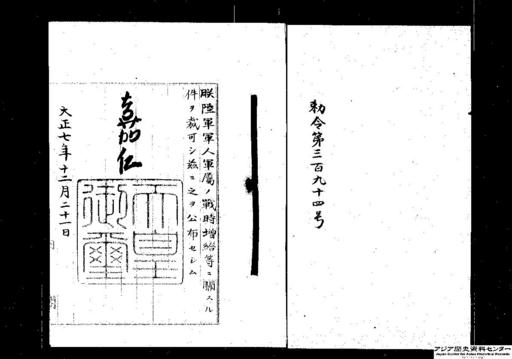 勅令第三百九十四号
朕陸軍軍人軍属ノ戦時増給等ニ関スル
件ヲ裁可シ茲ニ之ヲ公布セシム
嘉仁
天皇御璽
大正七年十二月二十一日
アジア歴史資料センター
Japan Center for Asian Historical Records